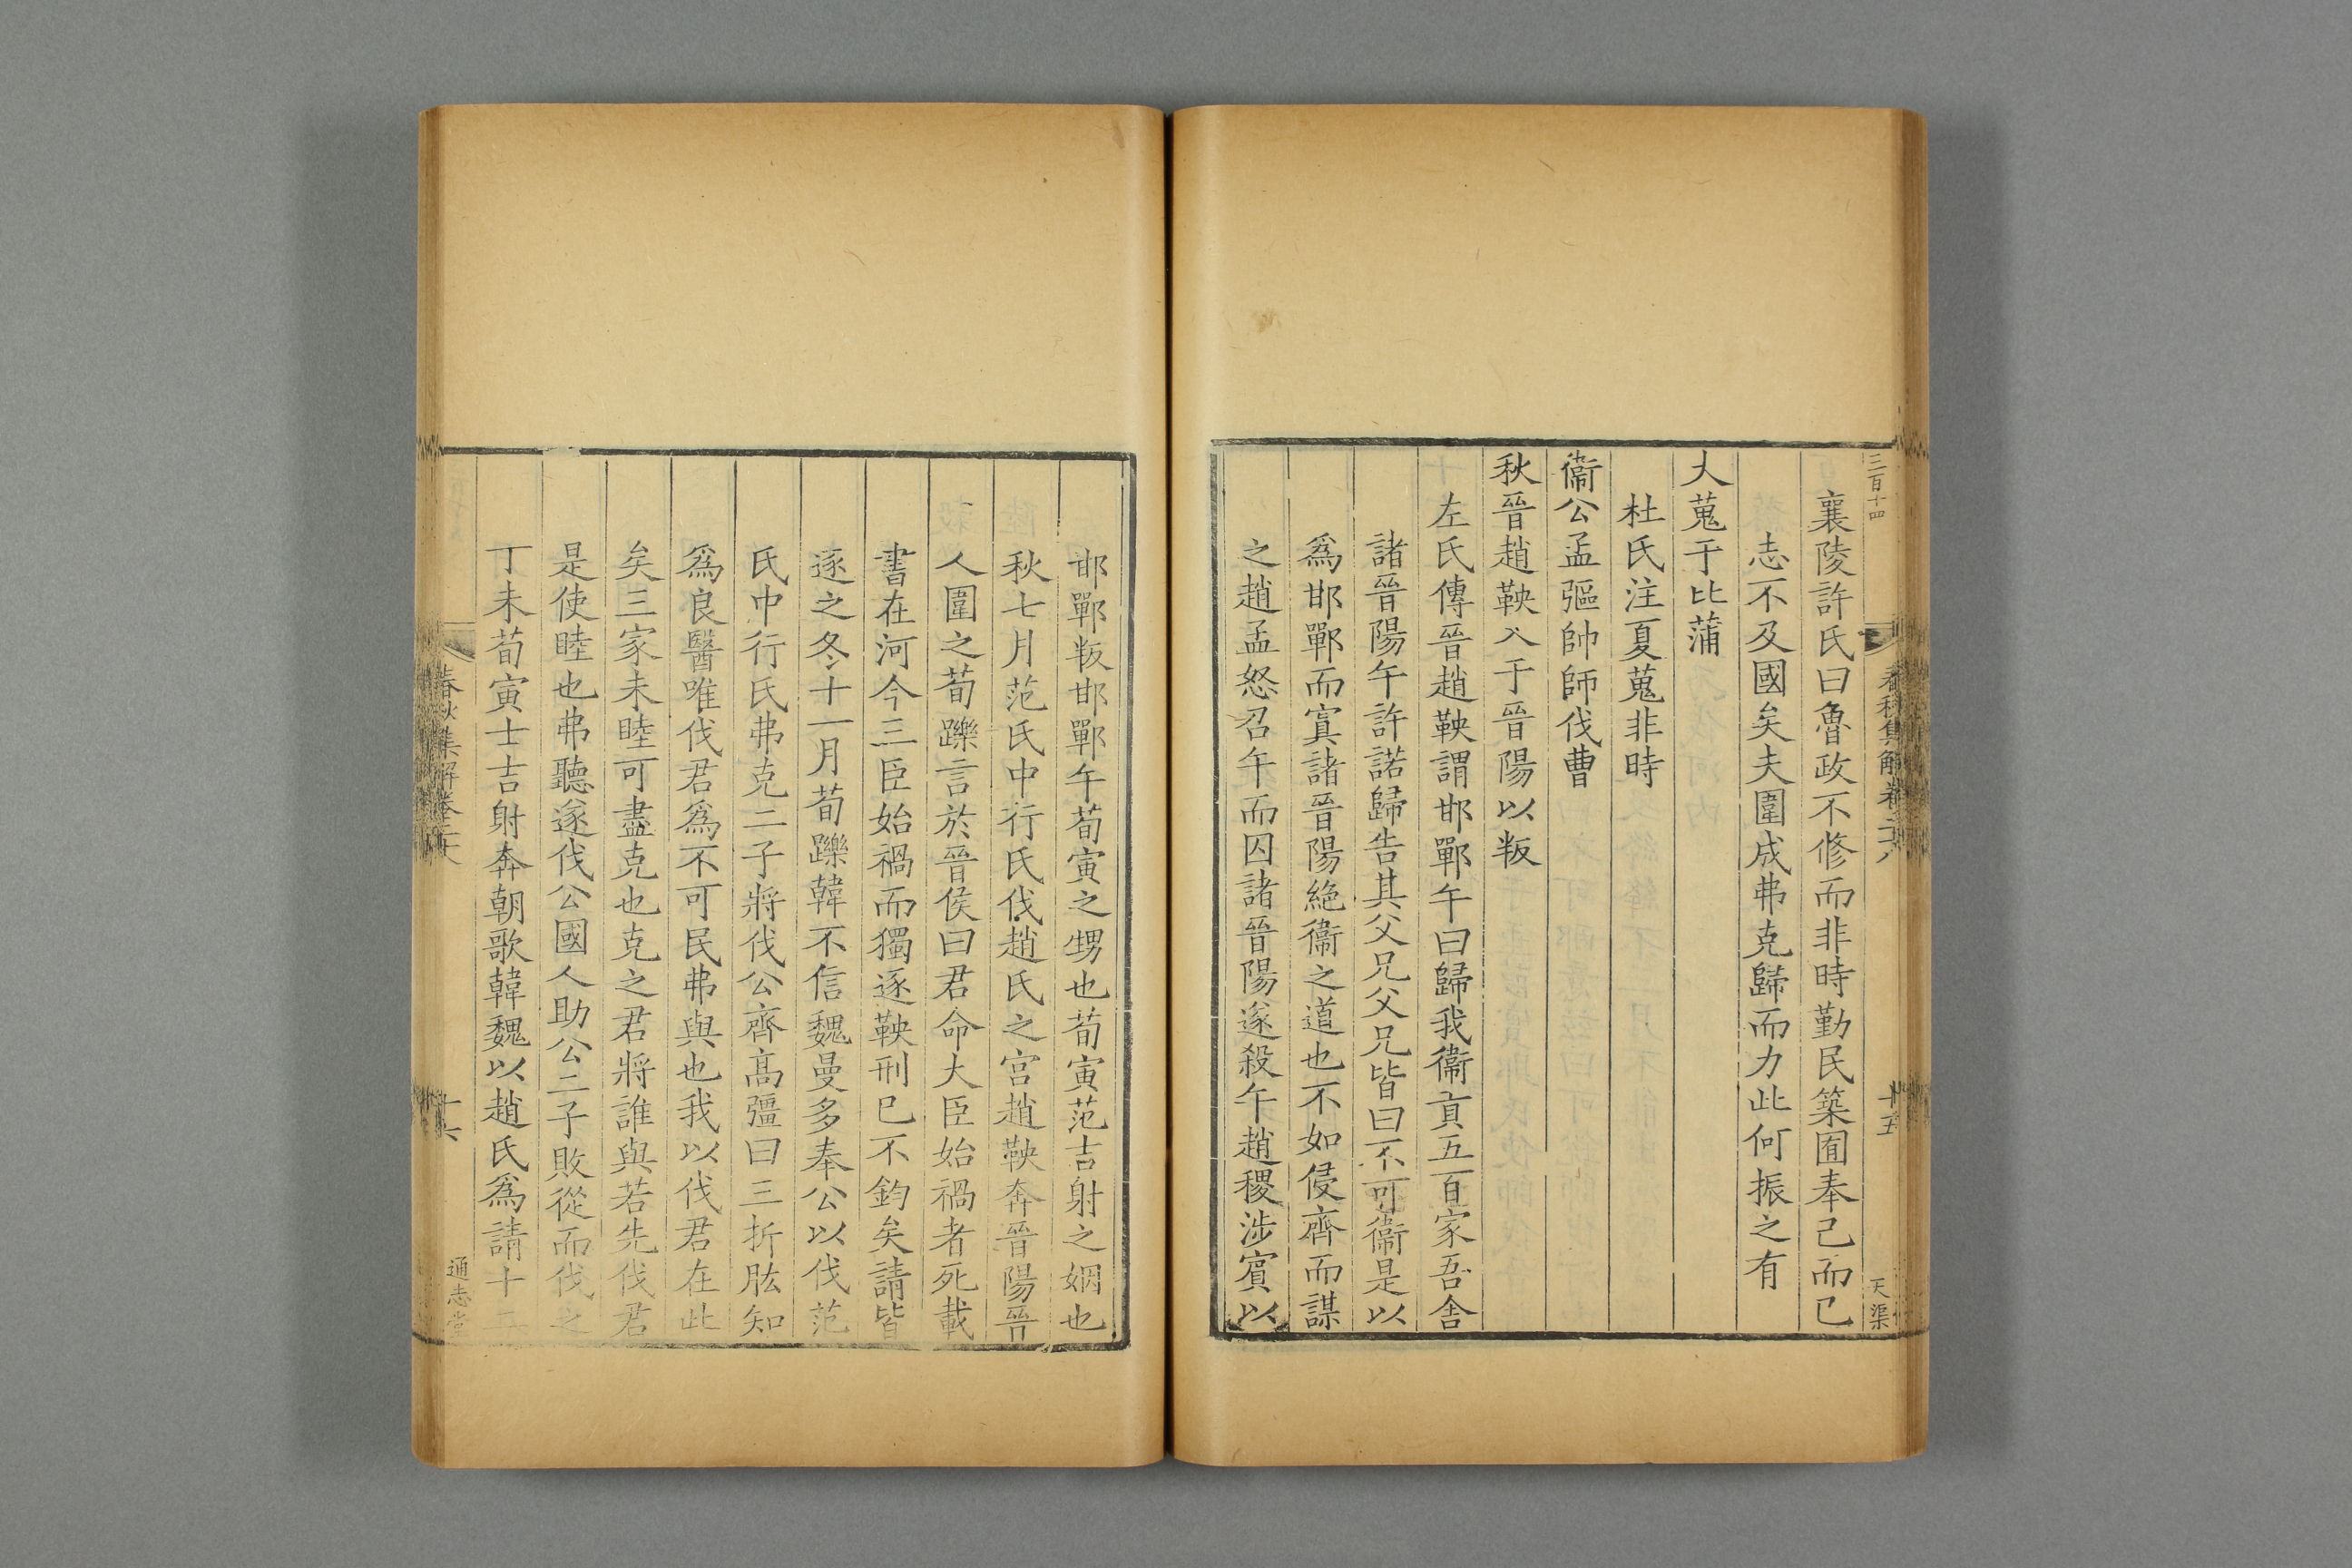 三百十四
春秋集解卷二十八
十五
天渠
襄陵許氏曰魯政不修而非時勤民築囿奉己而已
志不及國矣夫圍成弗克歸而力此何振之有
大蒐于比蒲
杜氏注夏蒐非時
衞公孟彄帥師伐曹
秋晉趙鞅入于晉陽以叛
左氏傳晉趙鞅謂邯鄲午曰歸我衞貢五百家吾舍
諸晉陽午許諾歸告其父兄父兄皆曰不可衞是以
爲邯鄲而寘諸晉陽絶衞之道也不如侵齊而謀
之趙孟怒召午而囚諸晉陽遂殺午趙稷涉賔以
邯鄲叛邯鄲午荀寅之甥也荀寅范吉射之姻也
秋七月范氏中行氏伐趙氏之宫趙鞅奔晉陽晉
人圍之荀躒言於晉侯曰君命大臣始禍者死載
書在河今三臣始禍而獨逐鞅刑已不鈞矣請皆
逐之冬十一月荀躒韓不信魏曼多奉公以伐范
氏中行氏弗克二子將伐公齊高彊曰三折肱知
爲良醫唯伐君爲不可民弗與也我以伐君在此
矣三家未睦可盡克也克之君將誰與若先伐君
是使睦也弗聽遂伐公國人助公二子敗從而伐之
丁未荀寅士吉射奔朝歌韓魏以趙氏爲請十二
春秋集解卷二十八
十六
通志堂